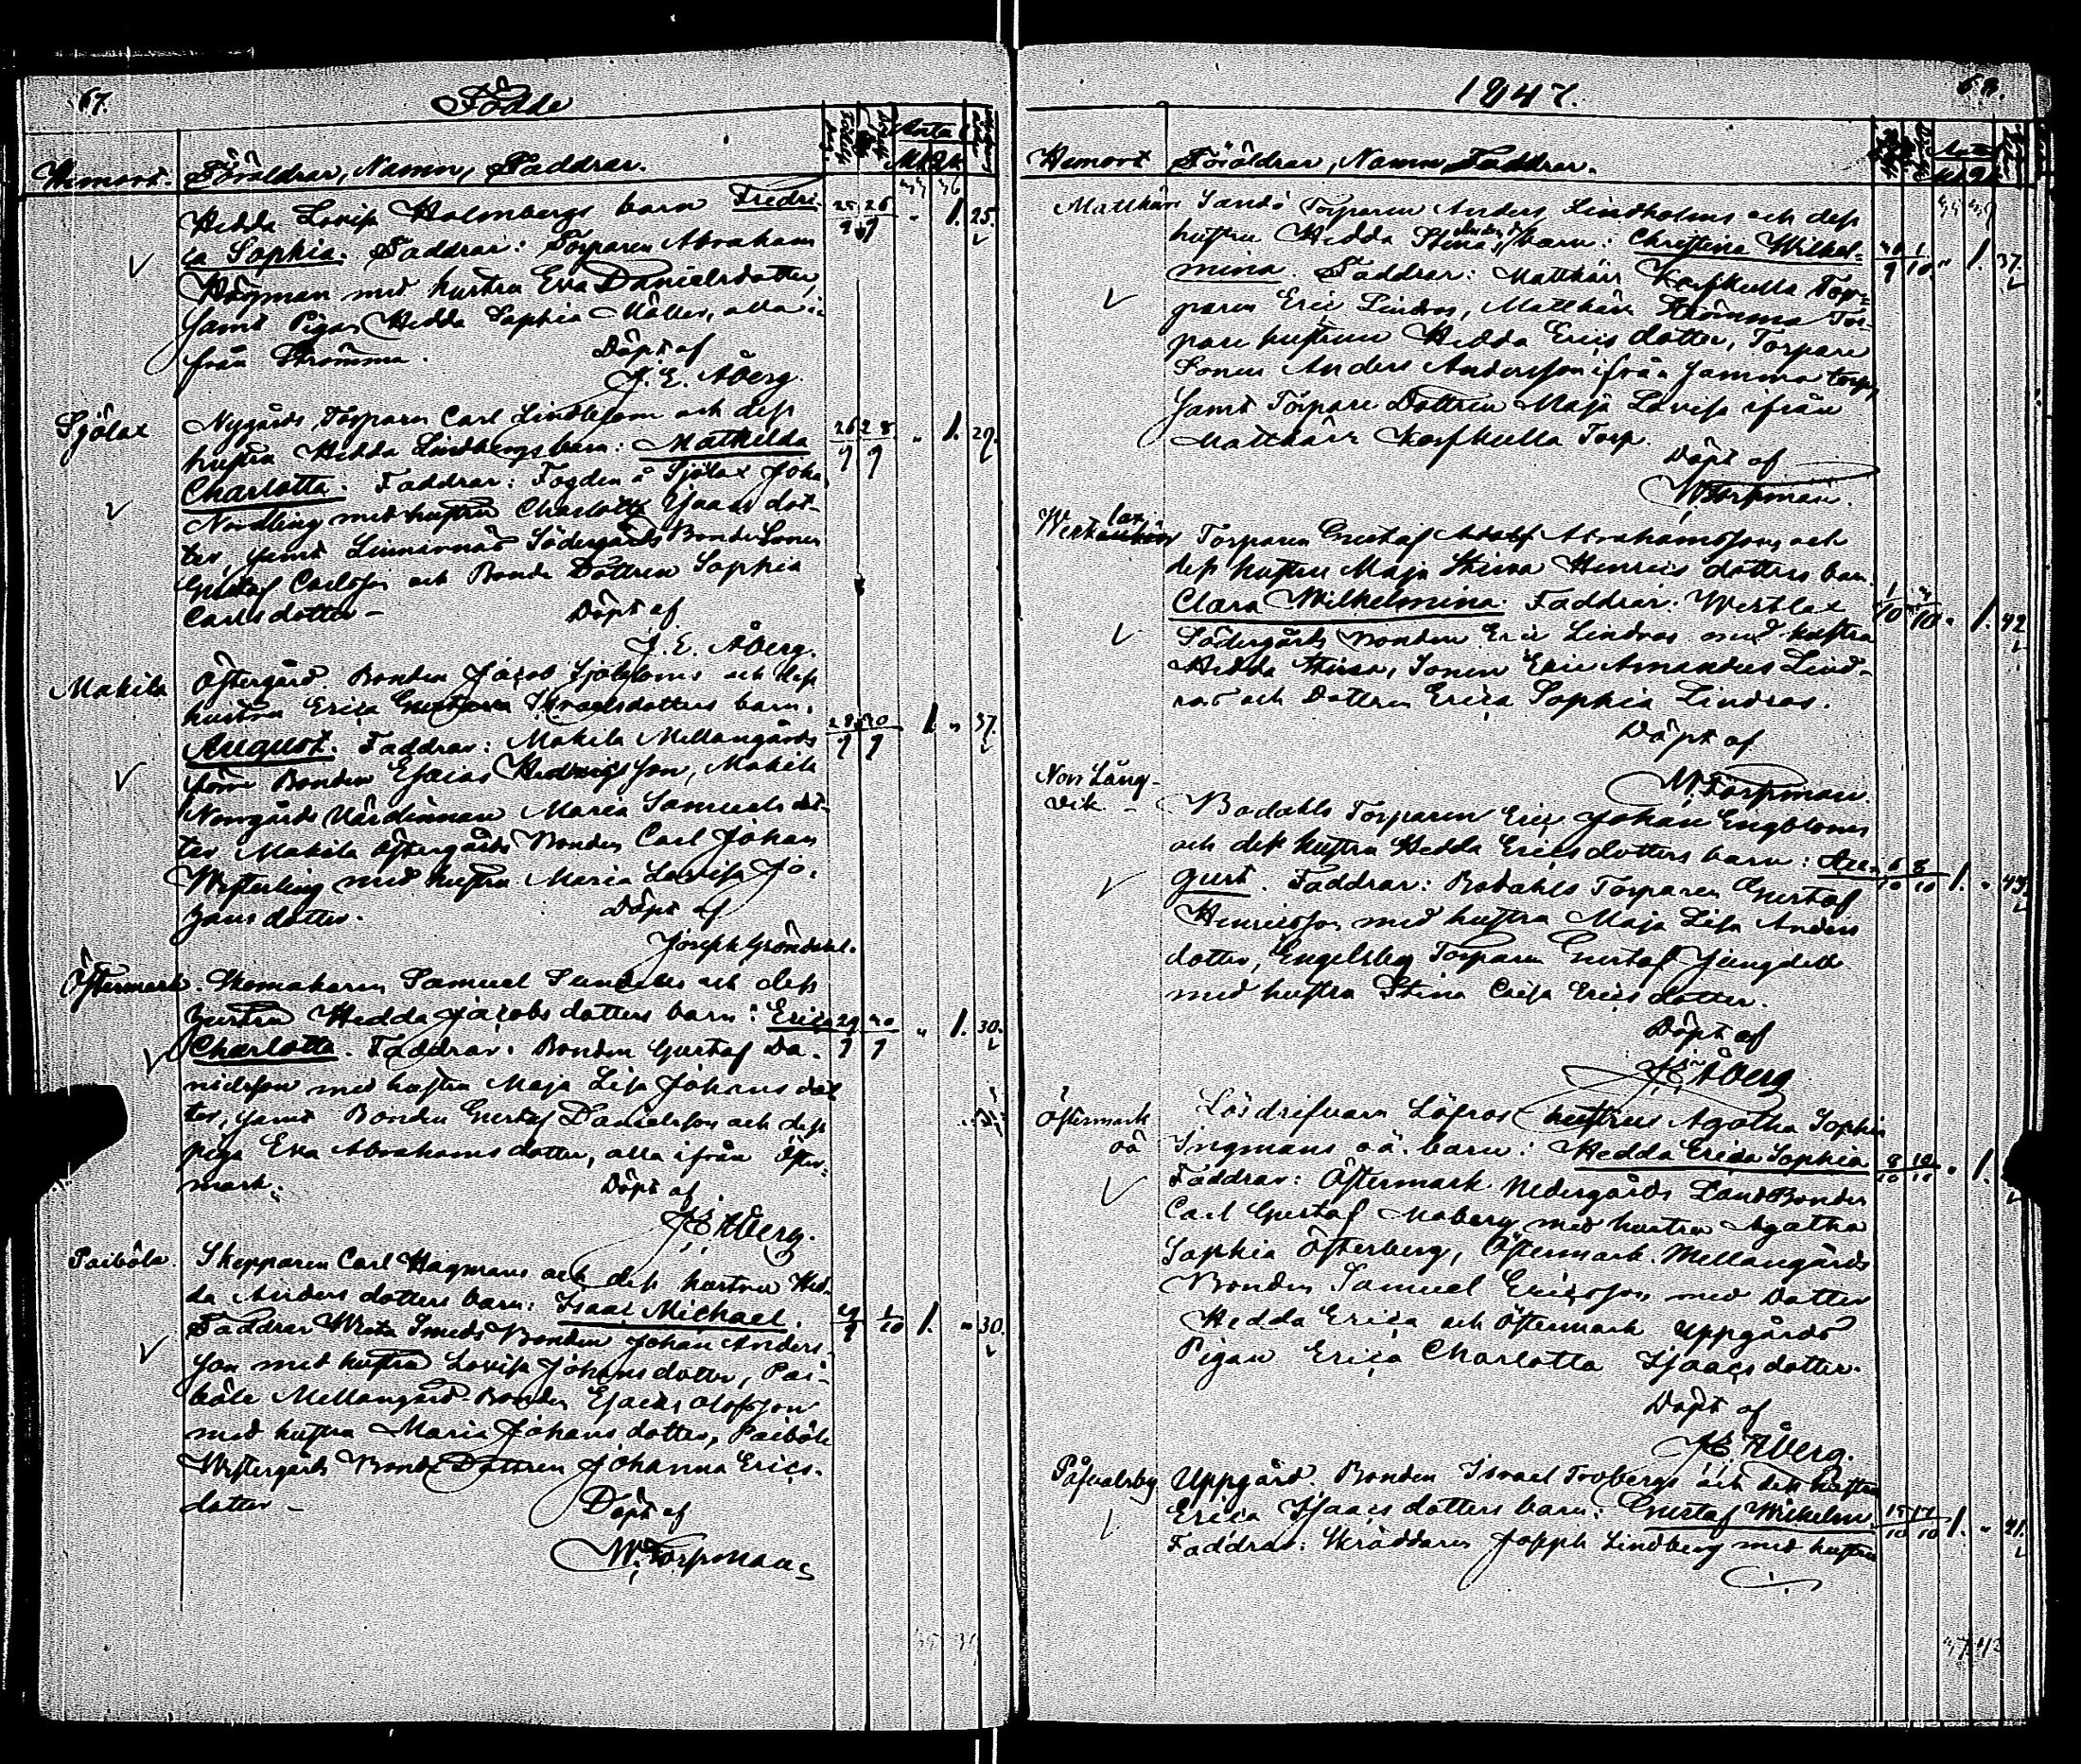 67. Födde
Hemort. Föräldrar, Namn, Faddrar.
Hedda Lovisa Holmbergs barn Fredri- 25/9 26/9 " 1. 25.
ca Sophia. Faddrar: Torparen Abraham
Högman med hustru Eva Danielsdotter,
samt Pigan Hedda Sophia Möller, alla i-
från Strömma. Döpt af
J. E. Åberg.
Sjölax Nygårds Torparen Carl Lindblom och dess 26/9 28/9 " 1. 29.
hustru Hedda Lindbergs barn: Mathilda
Charlotta. Faddrar: Fogden å Sjölax Joha
Nordling med hustru Charlotta Isaacs dot-
ter, samt Linnarnäs Södergårds Bonde Sonen
Gustaf Carlsson och Bonde Dottren Sophia
Carlsdotter – Döpt af
J. E. Åberg.
Makila Östergård. Bonden Jacob Sjöbloms och dess
hustru Erica Israelsdotters barn. 28/9 30/9 1. " 37.
August. Faddrar: Makila Mellangårds
förre Bonden Esaias Hedvigsson, Makila
Norrgårds Värdinnan Maria Samuels dot-
ter Makila Östergårds Bonden Carl Johan
Westerling med hustru Maria Lovisa Jo-
hansdotter. Döpt af
Joseph Gröndahl.
Östermark. Skomakaren Samuel Sundells och dess
hustru Hedda Jacobs dotters barn: Erica 29/9 30/9 " 1. 30.
Charlotta. Faddrar: Bonden Gustaf Da-
nielsson med hustru Maja Lisa Johans dot
ter, samt Bonden Gustaf Danielsson och dess
piga Eva Abrahamsdotter, alla ifrån Öster-
mark. Döpt af
JE Åberg.
Paiböle. Skepparen Carl Hagmans och dess hustru Hed-
da Anders dotters barn: Isaac Michael. 29/9 1/10 1. " 30.
Faddrar Wreta Smeds Bonden Johan Anders-
son med hustru Lovisa Johansdotter, Pai-
böle Mellangård Bonden Esaias Olofsson
med hustru Maria Johansdotter, Paiböle
Westergårds Bonde Dottren Johanna Erics-
dotter – Döpt af
W. Torpman
1847. 68.
Hemort Föräldrar, Namn, Faddrar.
Mattkärr Sandö Torparen Anders Lindholms och dess
hustru Hedda Stina barn: Christina Wilhel- 30/9 1/10 " 1. 37.
mina. Faddrar: Mattkärr Korskulla Tor-
paren Eric Lindros, Mattkärr Strömma Tor-
pare hustrun Hedda Erics dotter, Torpare
Sonen Anders Andersson ifrån samma torp,
samt Torpare Dottren Maja Lovisa ifrån
Mattkärr Korskulla Torp.
Döpt af
W. Torpman.
Westlax Torparen Gustaf Adolf Abrahamssons och
dess hustru Maja Stina Henrics dotters barn
Clara Wilhelmina. Faddrar: Westlax 1/10 /10 " 1. 42
Södergårds Bonden Eric Lindros med hustru
Hedda Stina, Sonen Eric Amandus Lind-
ros och Dottren Erica Sophia Lindros.
Döpt af
W. Torpman.
Norr Lång-
vik – Bodahls Torparen Eric Johan Engbloms
och dess hustru Hedda Ericsdotters barn: Au- 6/10 8/10 1. "
gust. Faddrar: Bodahls Torparen Gustaf
Henricsson med hustru Maja Lisa Anders
dotter, Engelsby Torparen Gustaf Ljungdell
med hustru Stina Caisa Erics dotter.
Döpt af
JE Åberg
Östermark Lösdrifvaren Löfros hustrus Agatha Sophia
oä Ingmans oä. barn: Hedda Erica Sophia 8/10 10/10 " 1.
Faddrar: Östermark Nedergårds Landbonden
Carl Gustaf Moberg med hustru Agatha
Sophia Österberg, Östermark Mellangårds
Bonden Samuel Ericsson med Dotter
Hedda Erica och Östermark Uppgårds
Pigan Erica Charlotta Isaacs dotter.
Döpt af
JE Åberg.
Påfvalsby Uppgård. Bonden Israel Frobergs och dess hustru
Erica Isaacs dotters barn: Gustaf Wilhelm 15/10 17/10 1. " 41.
Faddrar: Skräddaren Joseph Lindberg med hustru